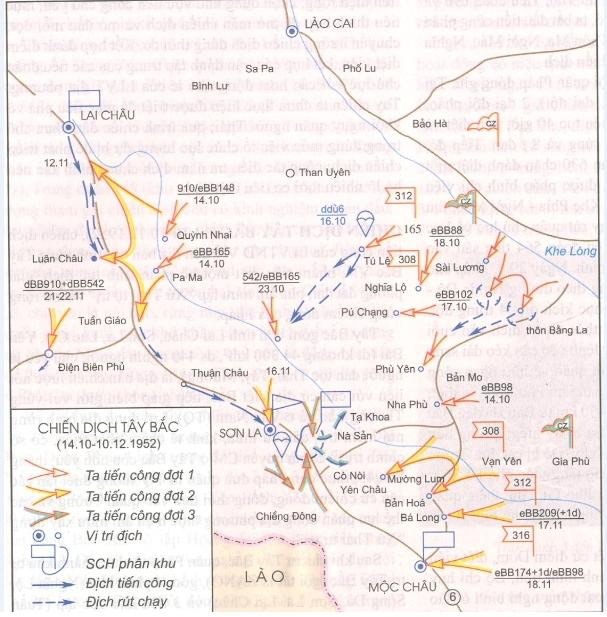 LÀO CAI
Sa Pa
Phố Lu
Bình Lư
LAI CHÂU
Bảo Hà
CZ
12.11
Than Uyên
910/eBB148
14.10
312
CZ
ddù6
16.10
165
eBB88
18.10
Quỳnh Nhai
Khe Lòng
Luân Châu
eBB165
14.10
Tú Lệ
308
Sài Lương
Pa Ma
542/eBB165
23.10
Nghĩa Lộ
eBB102
17.10
dBB910+dBB542
21-22.11
Pú Chạng
thôn Bằng La
Tuần Giáo
Điện Biên Phủ
Phù Yên
Thuận Châu
16.11
Bản Mo
eBB98
14.10
Nha Phù
SƠN LA
Tạ Khoa
Nà Sản
308
CZ
Vạn Yên
Gia Phù
Cò Nòi
Yên Châu
Mường Lum
312
Bản Hoả
Chiềng Đông
Bá Long
eBB209(+1d)
17.11
316
LÀO
MỘC CHÂU
eBB174+1d/eBB98
18.11
6
CHIẾN DỊCH TÂY BẮC
(14.10-10.12.1952)
Ta tiến công đợt 1
Ta tiến công đợt 2
Ta tiến công đợt 3
Vị trí địch
SCH phân khu
Địch tiến công
Địch rút chạy